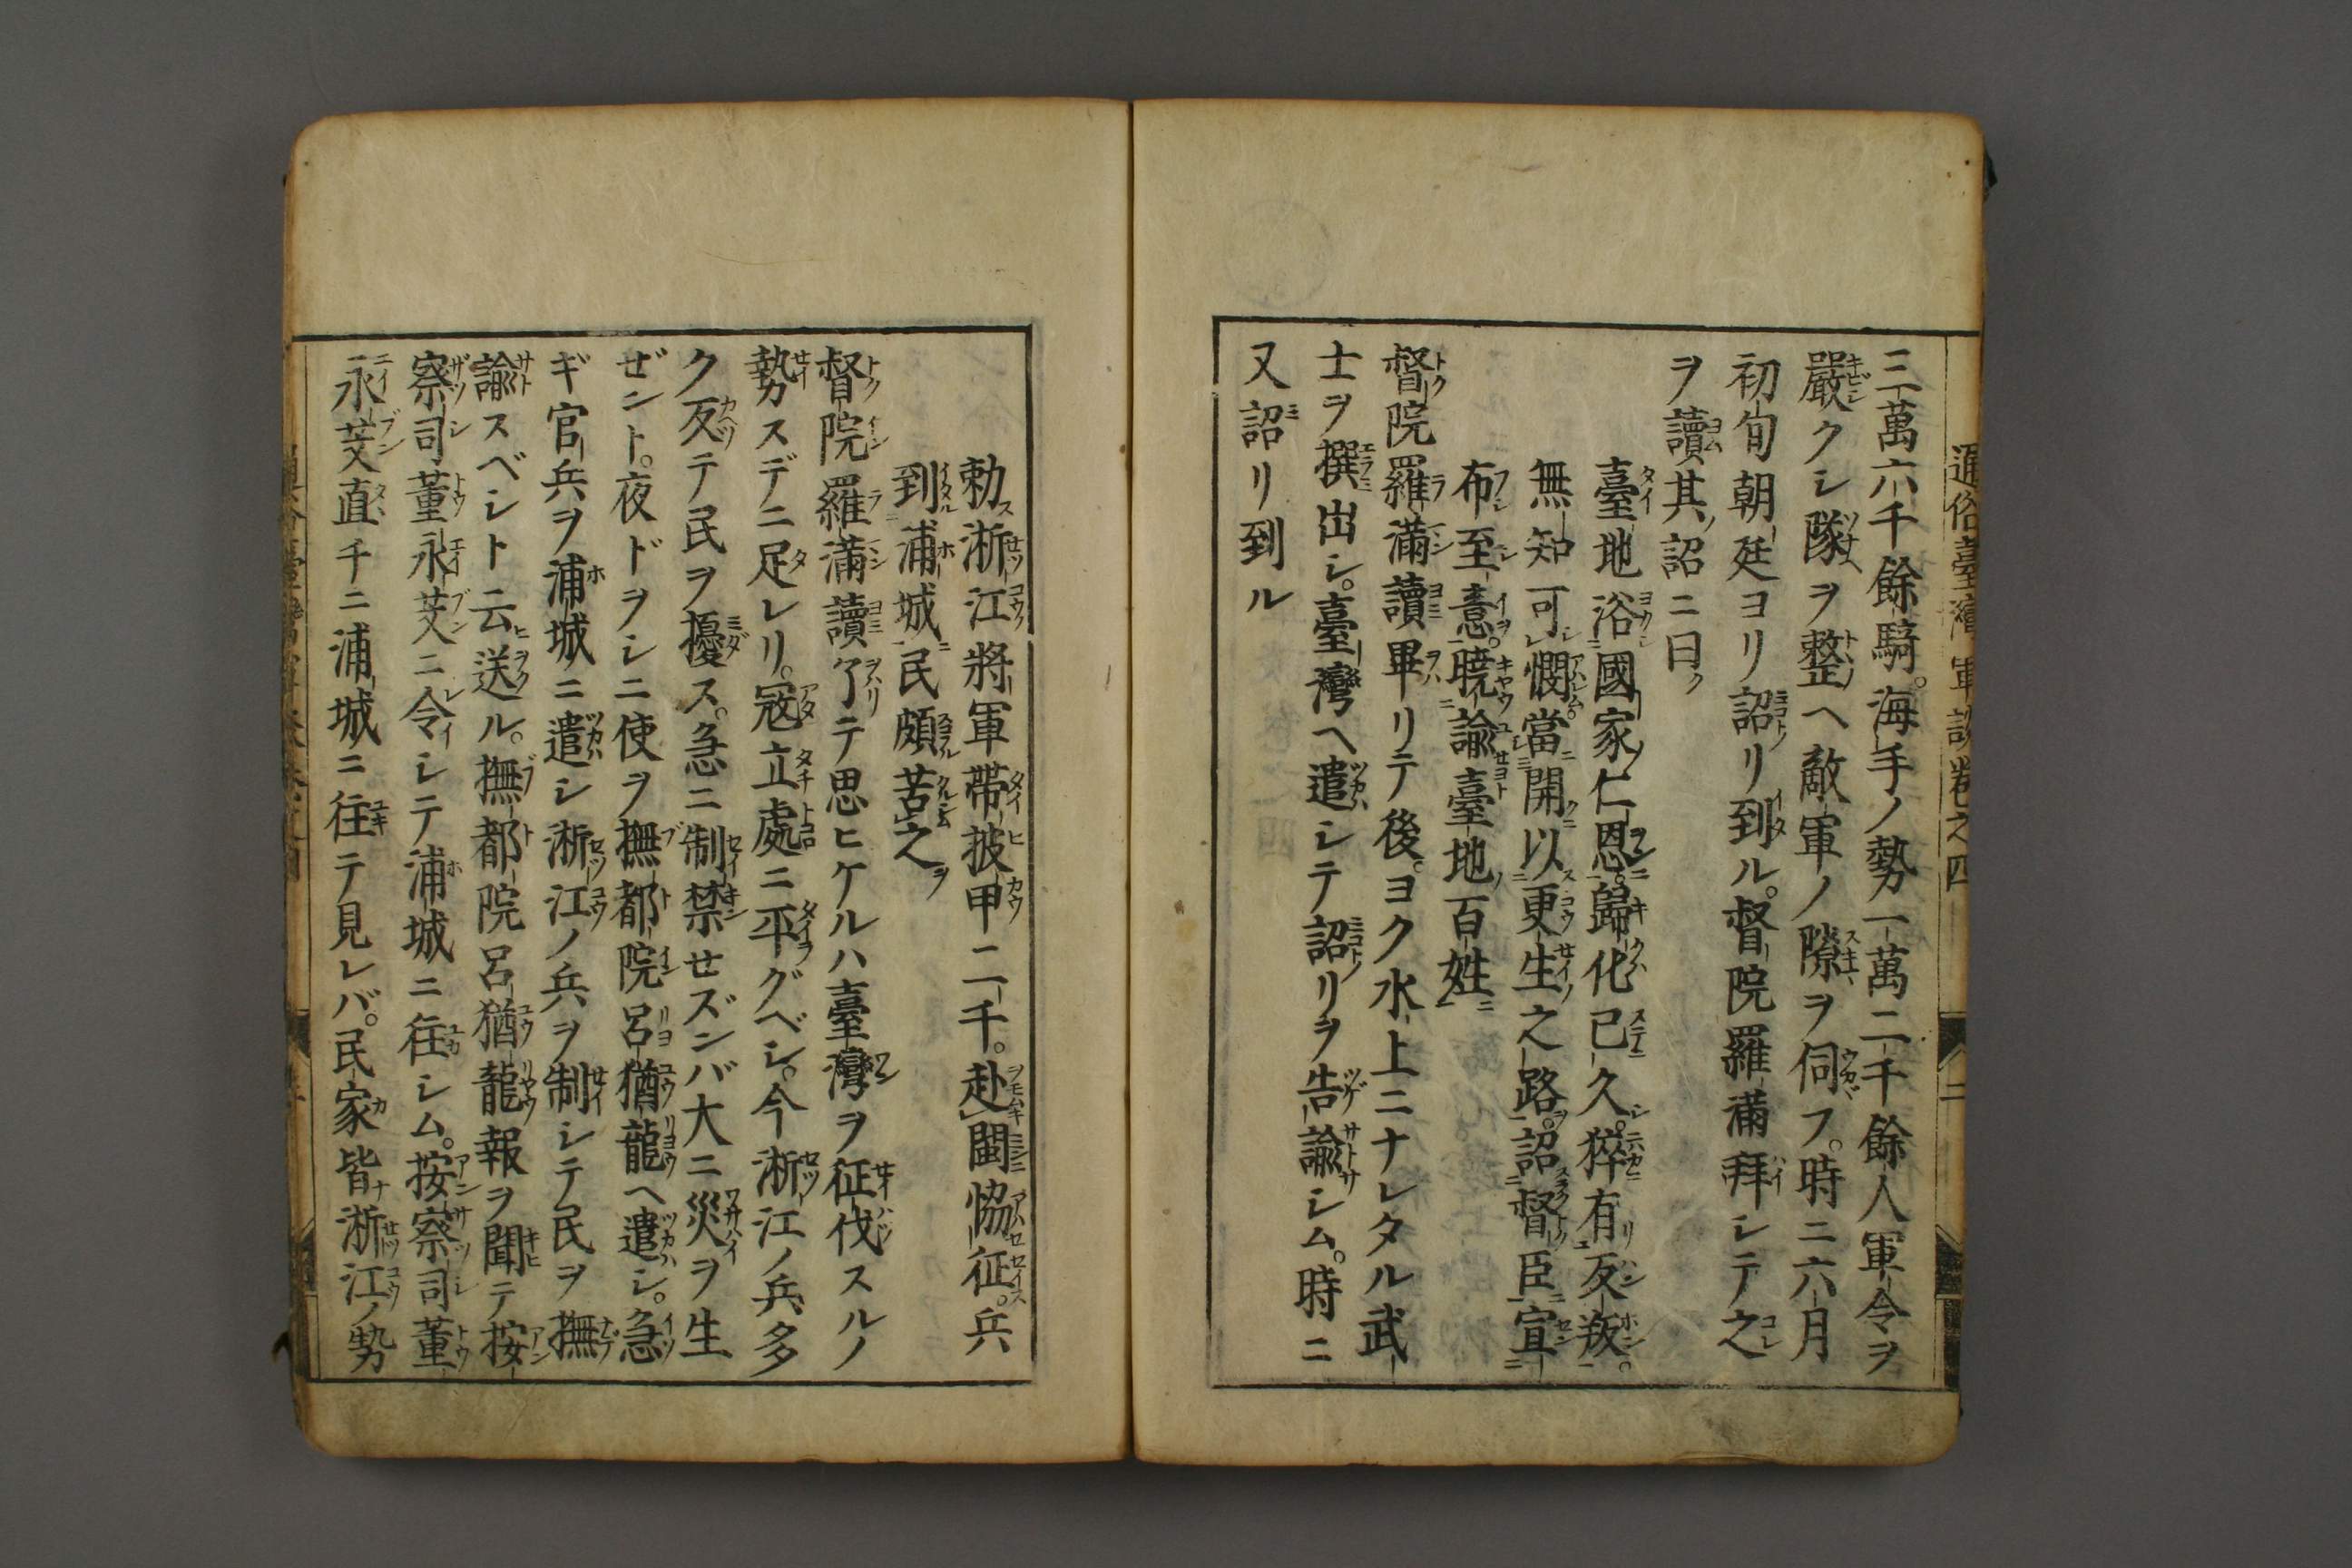 通俗臺灣軍談巻之四
三萬六千餘騎。海手ノ勢一萬二千餘人軍令ヲ
嚴クシ隊ヲ整ヘ敵軍ノ隙ヲ伺フ。時ニ六月
初旬朝廷ヨリ詔リ到ル。督院羅滿拜シテ之
ヲ讀其ノ詔ニ曰ク
臺地浴國家仁恩。歸化已久。猝有反叛。
無知可憫。當開以更生之路。詔督臣宣
布至意。曉諭臺地百姓
督院羅滿讀畢リテ後。ヨク水上ニナレタル武
士ヲ撰出シ。臺灣ヘ遣シテ詔リヲ告諭サシム。時ニ
又詔リ到ル
勅浙江將軍帶披甲二千。赴閩恊征。兵
到浦城民頗苦之
督院羅滿讀了テ思ヒケルハ臺灣ヲ征伐スルノ
勢スデニ足レリ。冦立處ニ平グベシ。今浙江ノ兵多
ク反テ民ヲ擾ス。急ニ制禁セズンバ大ニ災ヲ生
ゼント。夜ドヲシニ使ヲ撫都院呂猶龍ヘ遣シ。急
ギ官兵ヲ浦城ニ遣シ浙江ノ兵ヲ制シテ民ヲ撫
諭スベシト云送ル。撫都院呂猶龍報ヲ聞テ按
察司董永芠ニ令シテ浦城ニ往シム。按察司董
永芠直チニ浦城ニ往テ見レバ。民家皆浙江ノ勢